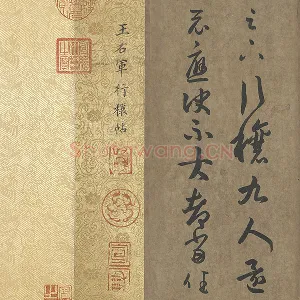 足下行穰九人還
示應決不大都當佳
王右軍行穰帖